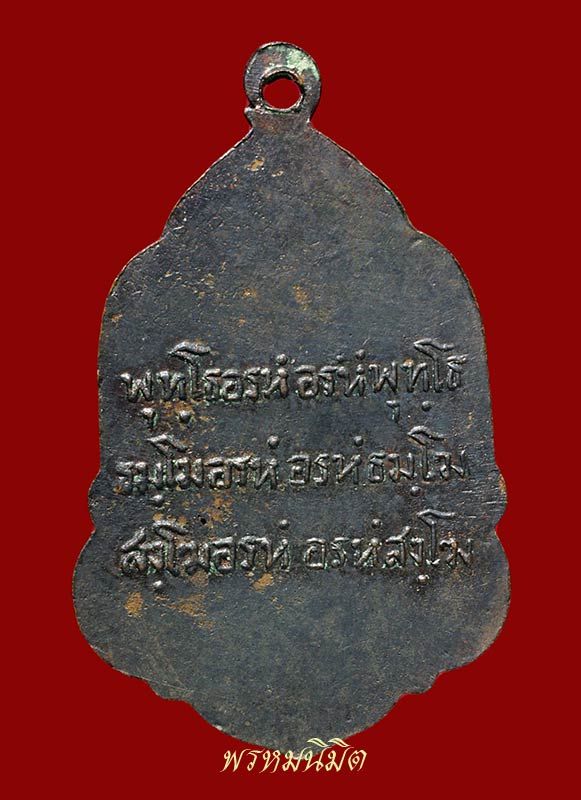 พุทฺโธอรหํ อรหํพุทฺโธ
ธมฺโมอรหํ อรหํธมฺโม
สงฺโฆอรหํ อรหํสงฺโฆ
พรหมนิมิต